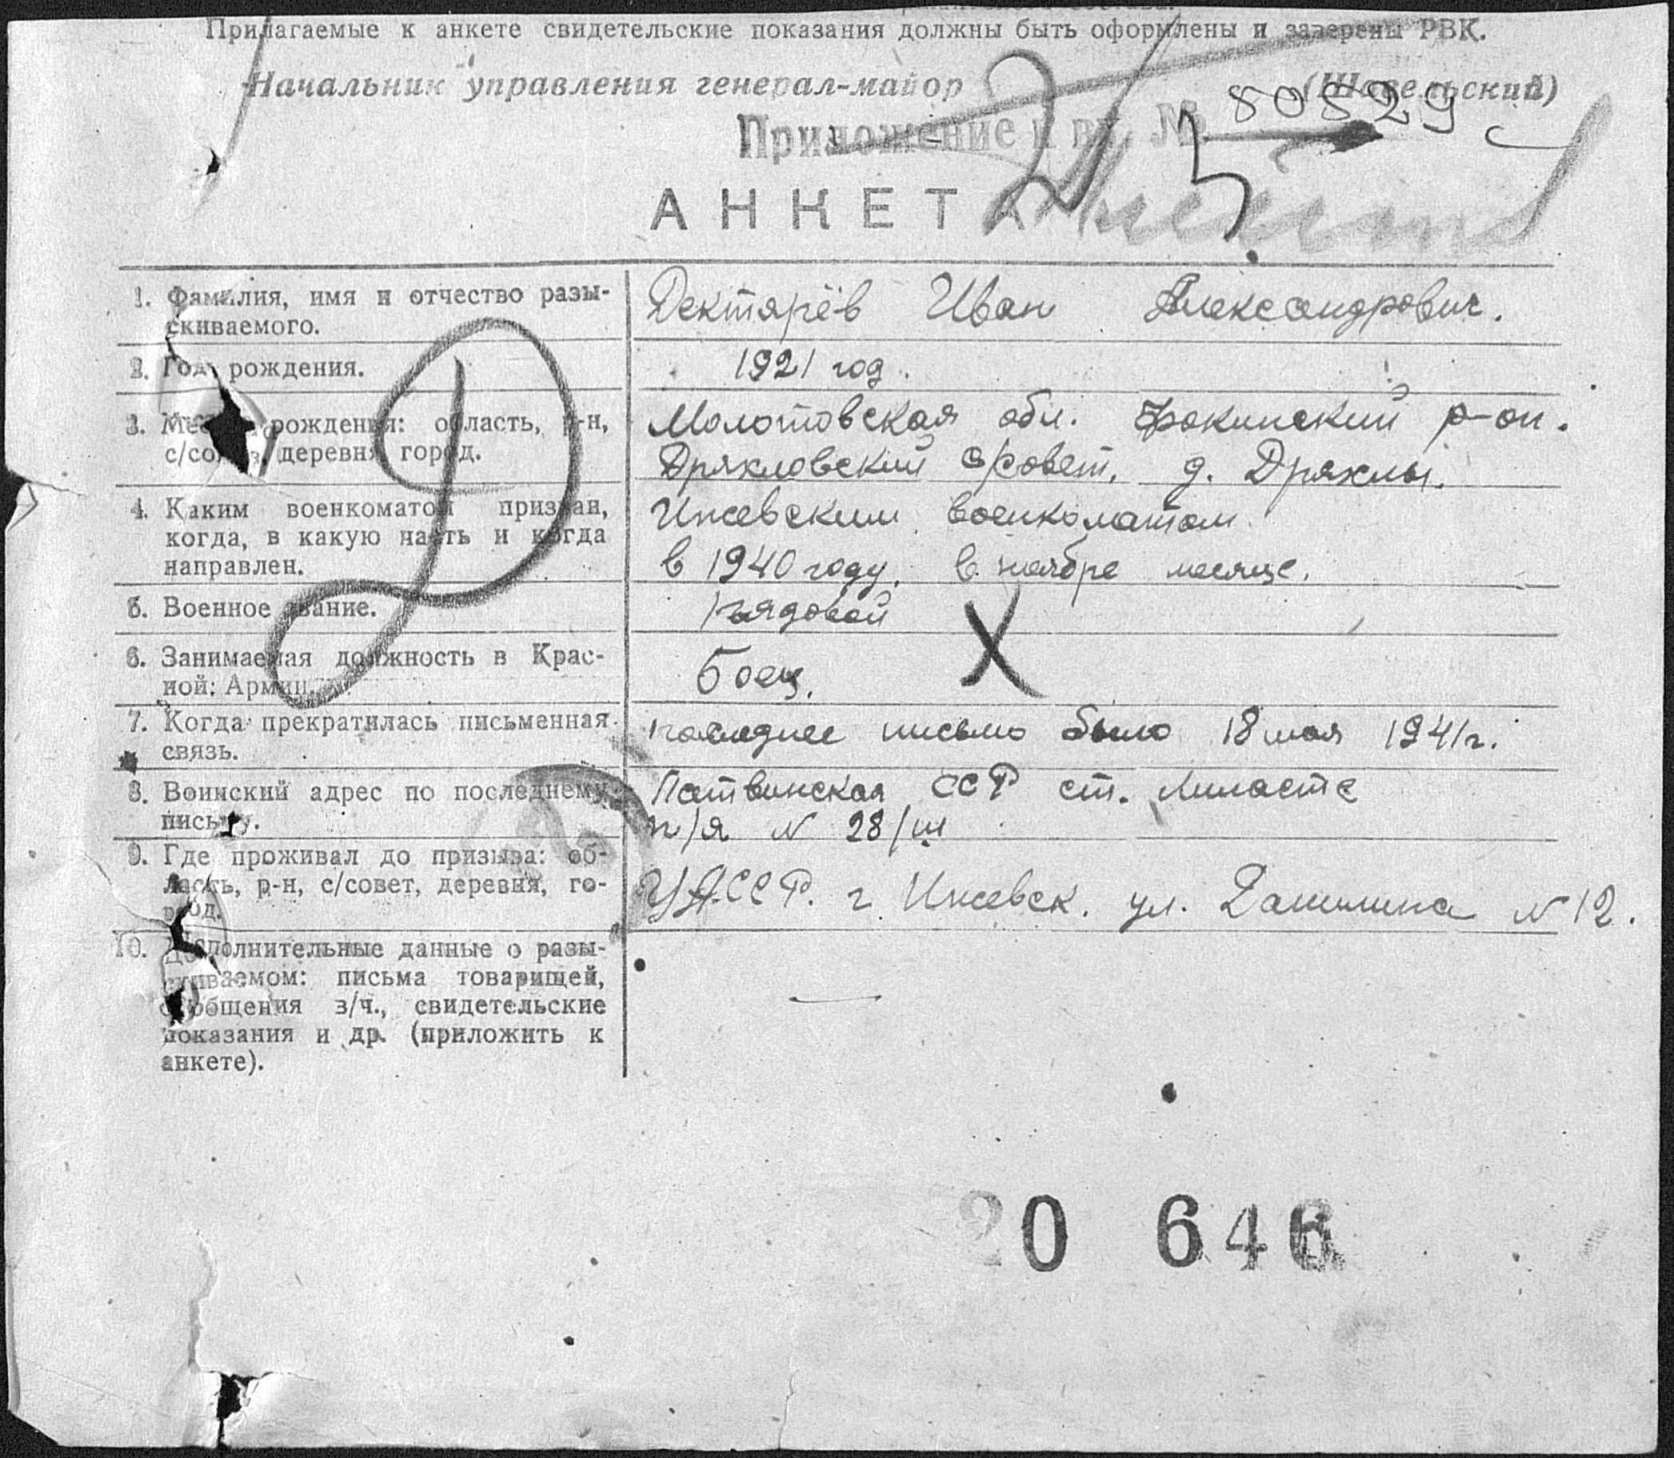 Прилагаемые к анкете свидетельские показания должны быть оформлены и заверены РВК.
Начальник управления генерал-майор (Шавельский)
Приложение к вх. № 80829
АНКЕТА
1. Фамилия, имя и отчество разы- Дектярёв Иван Александрович.
скиваемого.
2. Год рождения. 1921 год.
3. Место рождения: область, р-н, Молотовская обл. Фокинский р-он.
с/совет, деревня город. Дряхловский с/совет, д. Дряхлы.
4. Каким военкоматом призван, Ижевским военкоматом
когда, в какую часть и когда в 1940 году, в ноябре месяце.
направлен.
5. Военное звание. рядовой
6. Занимаемая должность в Крас- Боец.
ной Армии.
7. Когда прекратилась письменная последнее письмо было 18 мая 1941 г.
связь.
8. Воинский адрес по последнему Латвинская ССР ст. Лиласте
письму. п/я N 28/ш
9. Где проживал до призыва: об- УАССР. г. Ижевск. ул. Данилина N 12.
ласть, р-н, с/совет, деревня, го-
род.
10. Дополнительные данные о разы-
скиваемом: письма товарищей, —
сообщения з/ч., свидетельские
показания и др. (приложить к
анкете).
20 646